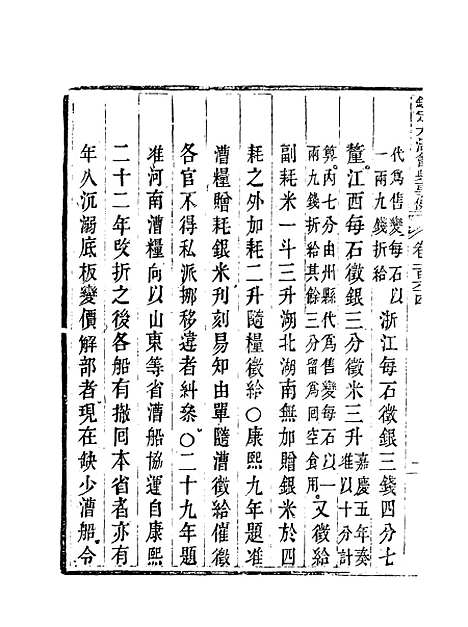 欽定大清會典事例
代為售變每石以
一兩九錢折給
浙江每石徵銀三錢四分七
釐江西每石徵銀三分徵米三升
嘉慶五年奏
准以十分計
算內七分由州縣代為售變每石以一
兩九錢折給其餘三分留為囘空食用
又徵給
副耗米一斗三升湖北湖南無加贈銀米於四
耗之外加耗二升隨糧徵給○康熙九年題准
漕糧贈耗銀米刋刻易知由單隨漕徵給催徵
各官不得私派挪移違者糾叅○二十九年題
准河南漕糧向以山東等省漕船協運自康熙
二十二年改折之後各船有撤囘本省者亦有
年久沉溺底板變價解部者現在缺少漕船令